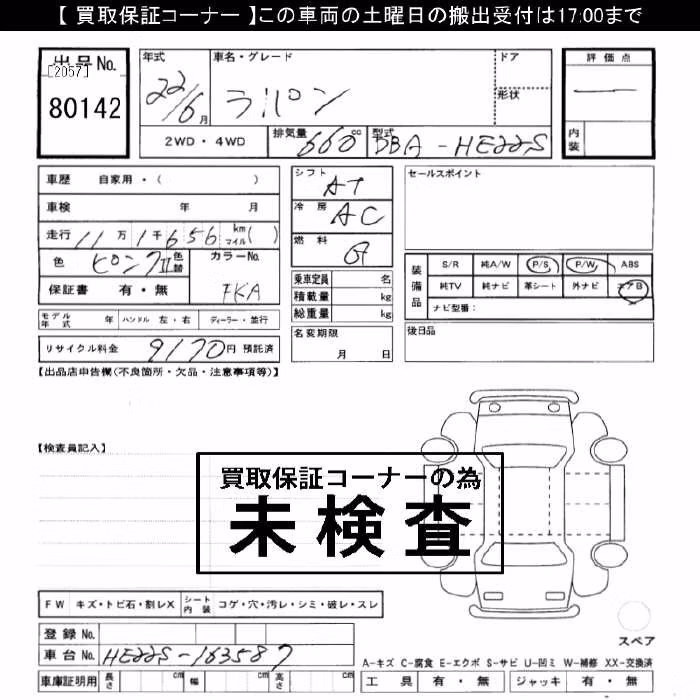 【 買取保証コーナー 】この車両の土曜日の搬出受付は17:00まで
出品No.
[2057]
80142
年式 22/6月
車名・グレード ラパン
ドア
形状
評価点 —
内装
2WD・4WD 排気量 660cc 型式 DBA-HE22S
車歴 自家用・( )
車検 年 月
走行 11万1千656 km マイル( )
色 ピンクII 色替 カラーNo. FKA
保証書 有・無
モデル年式 年 ハンドル 左・右 ディーラー・並行
リサイクル料金 9170円 預託済
シフト AT
冷房 AC
燃料 G
乗車定員 名
積載量 kg
総重量 kg
名変期限 月 日
セールスポイント
装備品 S/R 純A/W P/S P/W ABS
純TV 純ナビ 革シート 外ナビ エアB
ナビ型番：
後日品
【出品店申告欄(不良箇所・欠品・注意事項等)】
【検査員記入】
買取保証コーナーの為
未検査
FW キズ・トビ石・割レX シート内装 コゲ・穴・汚レ・シミ・破レ・スレ
登録No.
車台No. HE22S-163587
車庫証明用 長さ cm 幅 cm 高さ cm
スペア
A-キズ C-腐食 E-エクボ S-サビ U-凹ミ W-補修 XX-交換済
工具 有・無 ジャッキ 有・無